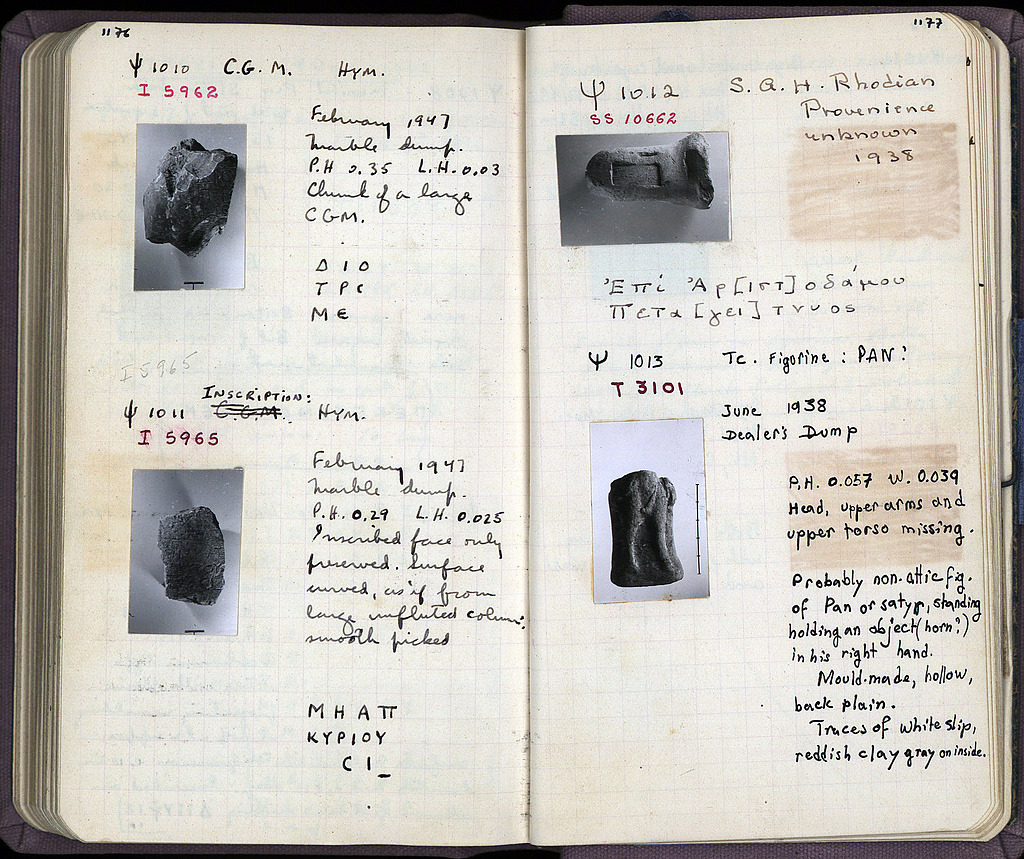 1176
Ψ 1010 C.G.M. Hym.
I 5962
February 1947
Marble dump.
P.H 0.35 L.H. 0.03
Chunk of a large
CGM.
Δ Ι Ο
Τ Ρ C
Μ Є
I 5965
Inscription:
Ψ 1011 C.G.M. Hym.
I 5965
February 1947
Marble dump.
P.H. 0.29 L.H. 0.025
Inscribed face only
preserved. Surface
curved, as if from
large unfluted column:
smooth picked
Μ Η Α Π
Κ Υ Ρ Ι Ο Υ
C Ι
1177
Ψ 1012 S.A.H. Rhodian
SS 10662
Provenience
unknown
1938
Ἐπί Ἀρ[ιστ]οδάμου
Πετα[γει]τνυος
Ψ 1013 Tc. Figurine: PAN?
T 3101
June 1938
Dealer's Dump
P.H. 0.057 W. 0.039
Head, upper arms and
upper torso missing.
Probably non-attic fig.
of Pan or satyr, standing
holding an object (horn?)
in his right hand.
Mould-made, hollow,
back plain.
Traces of white slip,
reddish clay gray on inside.